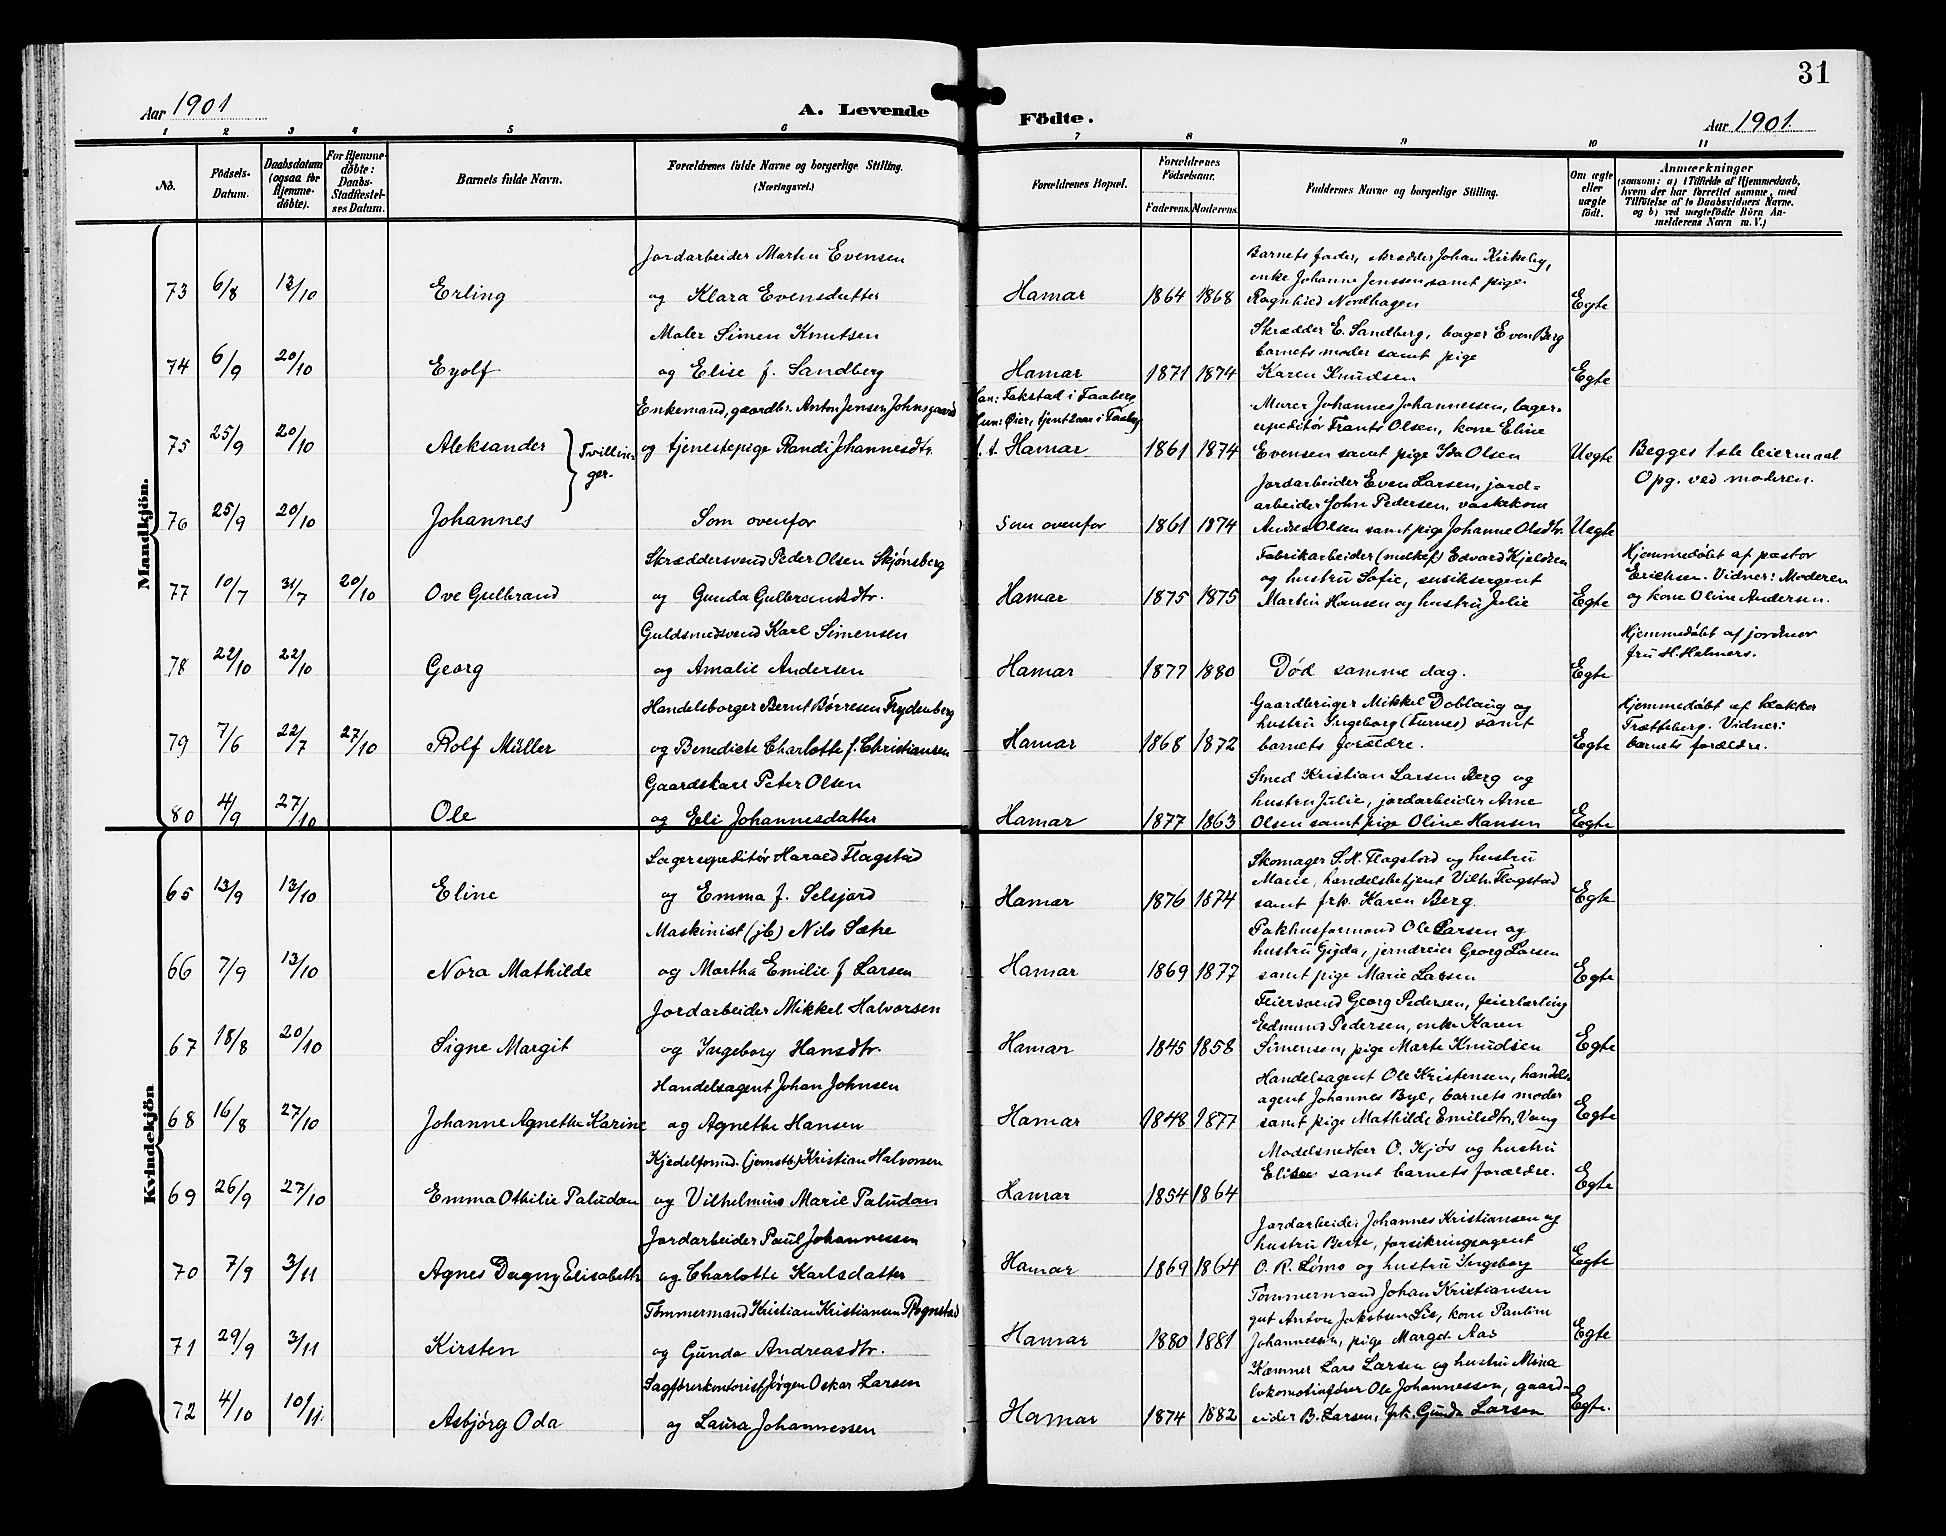 31
Aar 1901
A. Levende
Födte.
Aar 1901.
1 2 3 4 5 6 7 8 9 10 11
No.
Födsels-
Datum.
Daabsdatum
(ogsaa for
Hjemme-
döbte).
For Hjemme-
döbte:
Daabs-
Stadfæstel-
ses Datum.
Barnets fulde Navn.
Forældrenes fulde Navne og borgerlige Stilling.
(Næringsvei.)
Forældrenes Bopæl.
Forældrenes
Födselsaar.
Faderens. Moderens.
Faddernes Navne og borgerlige Stilling.
Om ægte
eller
uægte
født.
Anmærkninger
(saasom: a) i Tilfælde af Hjemmedaab,
hvem der har forrettet samme, med
Tilföielse af to Daabsvidners Navne.
og b) ved uegtefödte Börn An-
melderens Navn m. V.)
Mandkjön.
73 6/8 13/10 Erling
Jordarbeider Martin Evensen
og Klara Evensdatter
Hamar 1864 1868
Barnets fader, skrædder Johan Kirkeby,
enke Johanne Jenssen samt pige
Ragnhild Nordhagen
Egte
74 6/9 20/10 Eyolf
Maler Simen Knutsen
og Elise f. Sandberg
Hamar 1871 1874
Skrædder E. Sandberg, bager Even Berg
barnets moder samt pige
Karen Knudsen
Egte
75 25/9 20/10 Aleksander
Tvillin-
ger
Enkemand, gaardbr. Anton Jensen Johnsgaard
og tjenestepige Randi Johannesdtr.
Han: Fakstad i Faaberg
Hun: Øier, tjent 2 aar i Faaberg
f. t. Hamar 1861 1874
Murer Johannes Johannessen, lager-
expeditör Frants Olsen, kone Eline
Evensen samt pige Ida Olsen
Uegte
Begges 1ste leiermaal
Opg. ved moderen.
76 25/9 20/10 Johannes
Som ovenfor
Som ovenfor 1861 1874
Jordarbeider Even Larsen, jord-
arbeider John Pedersen, vaskekone
Andrea Olsen samt pige Johanne Olsdtr.
Uegte
77 10/7 31/7 20/10 Ove Gulbrand
Skræddersvend Peder Olsen Skjønsberg
og Gunda Gulbrandsdtr.
Hamar 1875 1875
Fabrikarbeider (melkef) Edvard Kjeldsen
og hustru Sofie, musiksergent
Martin Hansen og hustru Julie
Egte
Hjemmedøbt af pastor
Erichsen. Vidner: Moderen
og kone Oline Andersen.
78 22/10 22/10 Georg
Guldsmedsvend Karl Simensen
og Amalie Andersen
Hamar 1877 1880
Død samme dag.
Egte
Hjemmedøbt af jordmor
fru H. Helmers.
79 7/6 22/7 27/10 Rolf Müller
Handelsborger Bernt Børresen Frydenberg
og Benedicte Charlotte f. Christiansen
Hamar 1868 1872
Gaardbruger Mikkel Doblaug og
hustru Ingeborg (Furnes) samt
barnets forældre.
Egte
Hjemmedøbt af klokker
Trætteberg. Vidner:
barnets forældre.
80 4/9 27/10 Ole
Gaardskarl Peter Olsen
og Eli Johannesdatter
Hamar 1877 1863
Smed Kristian Larsen Berg og
hustru Julie, jordarbeider Arne
Olsen samt pige Oline Hansen
Egte
Kvindekjön
65 13/9 13/10 Eline
Lagerexpeditör Harald Flagstad
og Emma f. Selsjord
Hamar 1876 1874
Skomager S. H. Flagstad og hustru
Marie, handelsbetjent Vilh. Flagstad
samt frk. Karen Berg.
Egte
66 7/9 13/10 Nora Mathilde
Maskinist (jb) Nils Sætre
og Martha Emilie f Larsen
Hamar 1869 1877
Pakhusformand Ole Larsen og
hustru Gyda, jerndreier Georg Larsen
samt pige Marie Larsen
Egte
67 18/8 20/10 Signe Margit
Jordarbeider Mikkel Halvorsen
og Ingeborg Hansdtr.
Hamar 1845 1858
Feiersvend Georg Pedersen, feierlærling
Edmund Pedersen, enke Karen
Simensen, pige Marte Knudsen
Egte
68 16/8 27/10 Johanne Agnethe Karine
Handelsagent Johan Johnsen
og Agnethe Hansen
Hamar 1848 1877
Handelsagent Ole Kristensen, handels-
agent Johannes Bye, barnets moder
samt pige Mathilde Emilsdtr. Vang
Egte
69 26/9 27/10 Emma Othilie Paludan
Kjedelformd. (jernstb.) Kristian Halvorsen
og Vilhelmine Marie Paludan
Hamar 1854 1864
Modelsnedker O. Kjøs og hustru
Elise samt barnets forældre.
Egte
70 7/9 3/11 Agnes Dagny Elisabeth
Jordarbeider Paul Johannessen
og Charlotte Karlsdatter
Hamar 1869 1864
Jordarbeider Johannes Kristiansen og
hustru Berte, forsikringsagent
O. R. Limo og hustru Ingeborg
Egte
71 29/9 3/11 Kirsten
Tømmermand Kristian Kristiansen Rognstad
og Gunda Andreasdtr.
Hamar 1880 1881
Tømmermand Johan Kristiansen
gut Anton Jakobsen Lie, kone Pauline
Johannessen, pige Margit Aas
Egte
72 4/10 10/11 Asbjörg Oda
Sagførerkontorist Jørgen Oskar Larsen
og Laura Johannessen
Hamar 1874 1882
Kæmner Lars Larsen og hustru Mina
lokomotivfører Ole Johannessen, gaard-
eider B. Larsen, frk. Gunda Larsen
Egte.